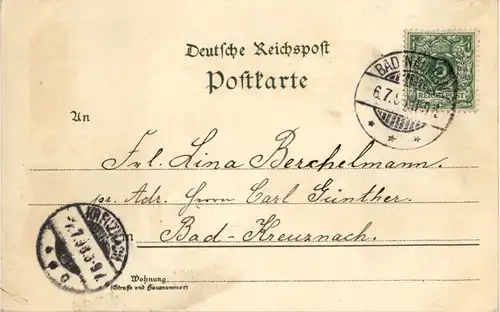 Deutsche Reichspost
Postkarte
5
REICHSPOST
BAD
6.7.
An
Frl. Lina Berchelmann.
pr. Adr. Herrn Carl Günther.
in Bad-Kreuznach.
KREUZNACH
7.7.98.
Wohnung
(Straße und Hausnummer)